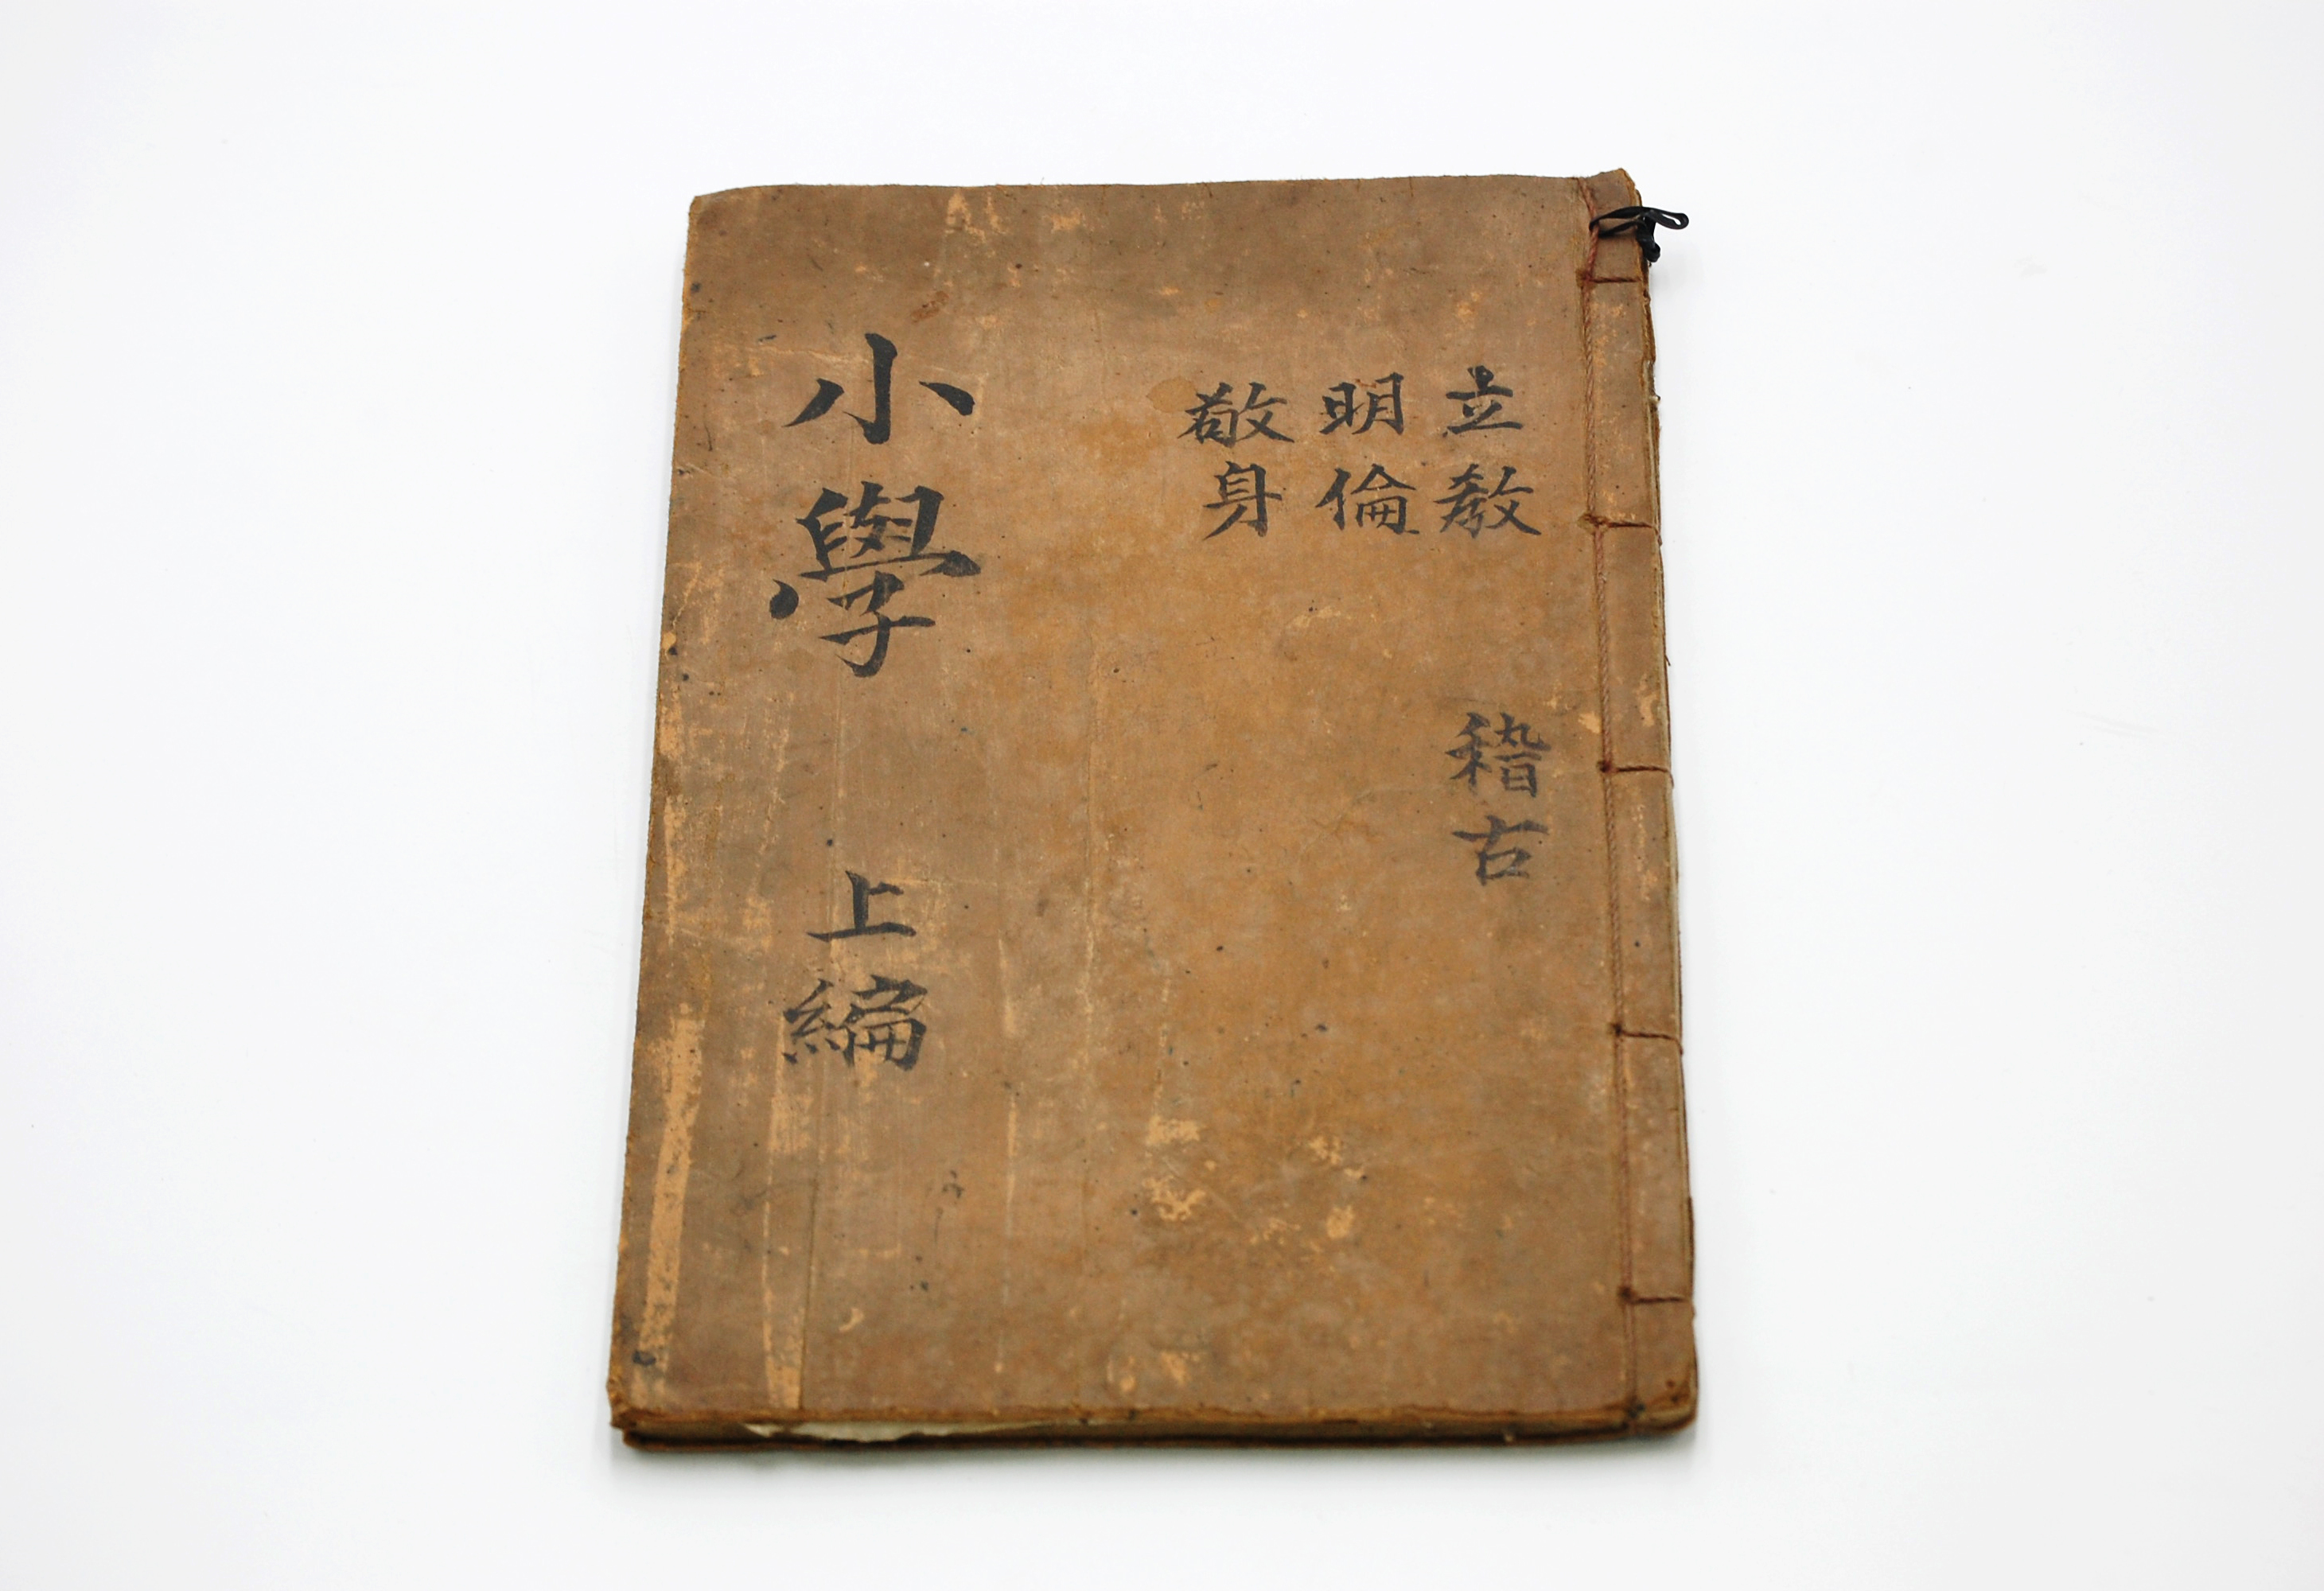 立敎 稽古
明倫
敬身
小學 上編